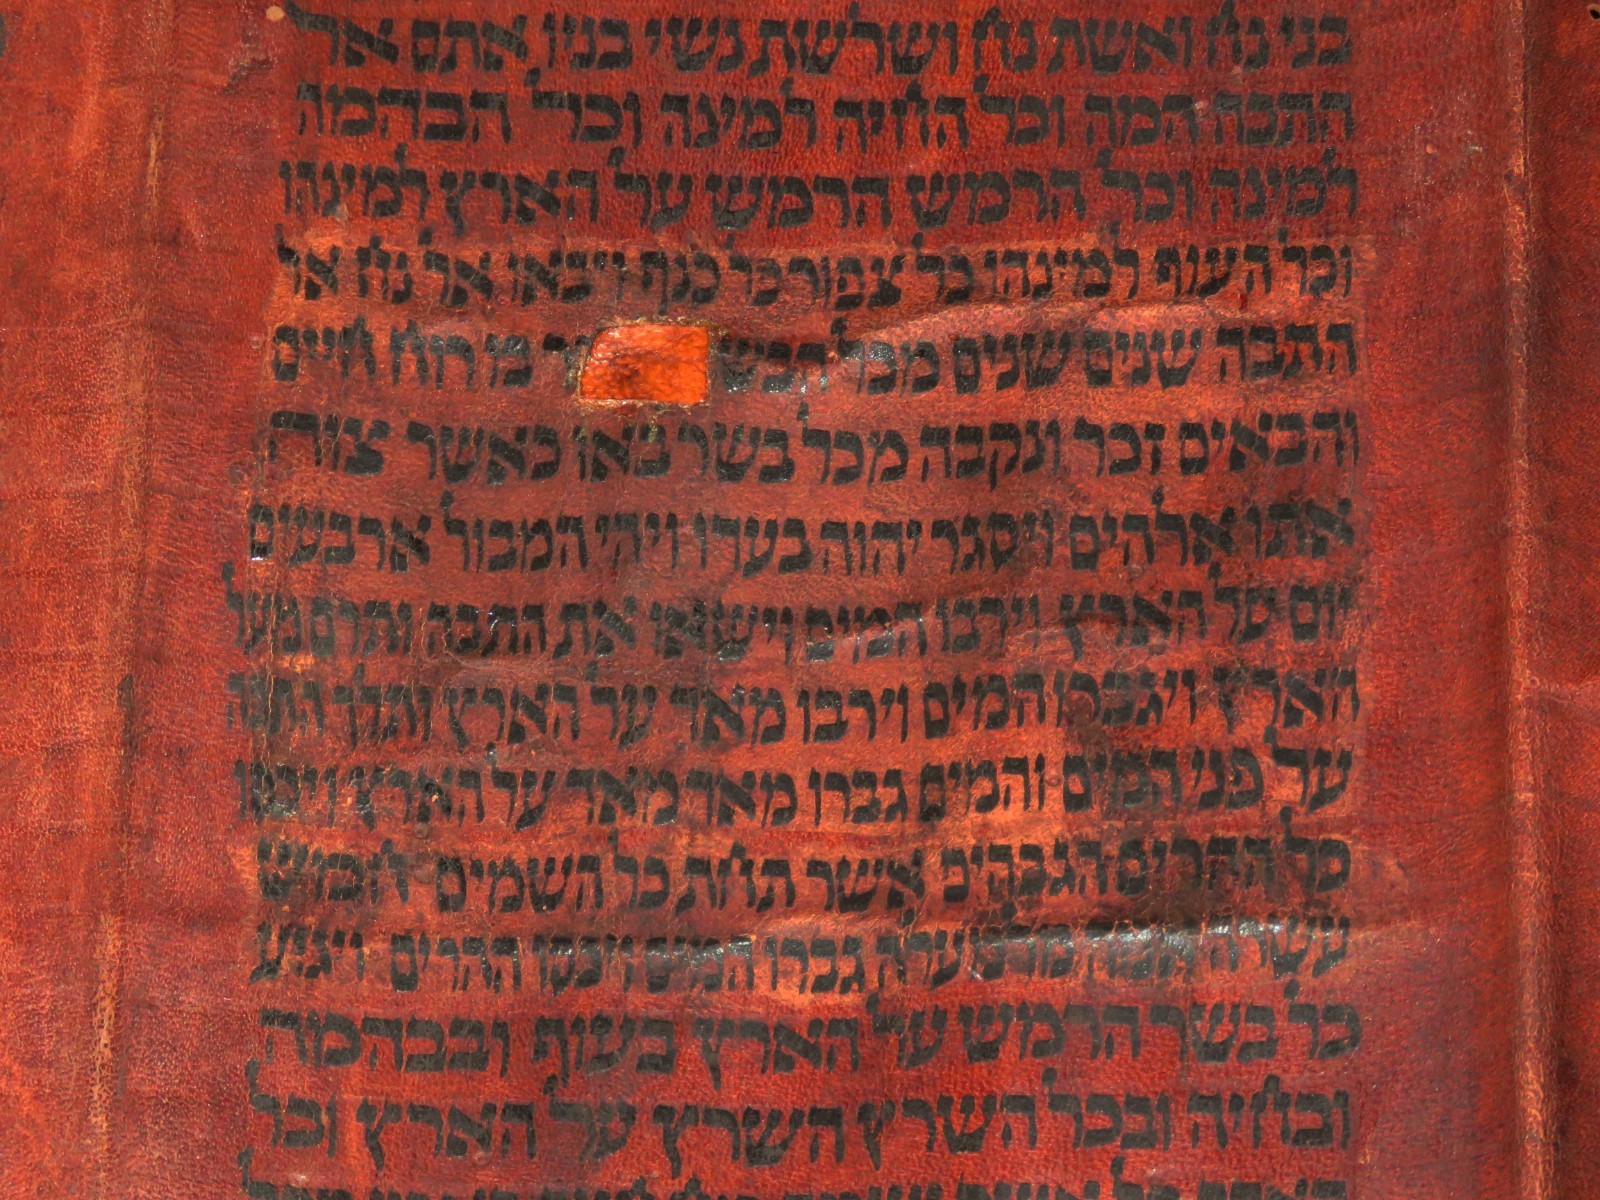 בני נח ואשת נח ושלשת נשי בניו אתם אל
התבה המה וכל החיה למינה וכל הבהמה
למינה וכל הרמש הרמש על הארץ למינהו
וכל העוף למינהו כל צפור כל כנף ויבאו אל נח אל
התבה שנים שנים מכל הבש רוח חיים
והבאים זכר ונקבה מכל בשר באו כאשר צוה
אתו אלהים ויסגר יהוה בעדו ויהי המבול ארבעים
יום על הארץ וירבו המים וישאו את התבה ותרם מעל
הארץ ויגברו המים וירבו מאד על הארץ ותלך התבה
על פני המים והמים גברו מאד מאד על הארץ ויכסו
כל ההרים הגבהים אשר תחת כל השמים חמש
עשרה אמה מלמעלה גברו המים ויכסו ההרים ויגוע
כל בשר הרמש על הארץ בעוף ובבהמה
ובחיה ובכל השרץ השרץ על הארץ וכל